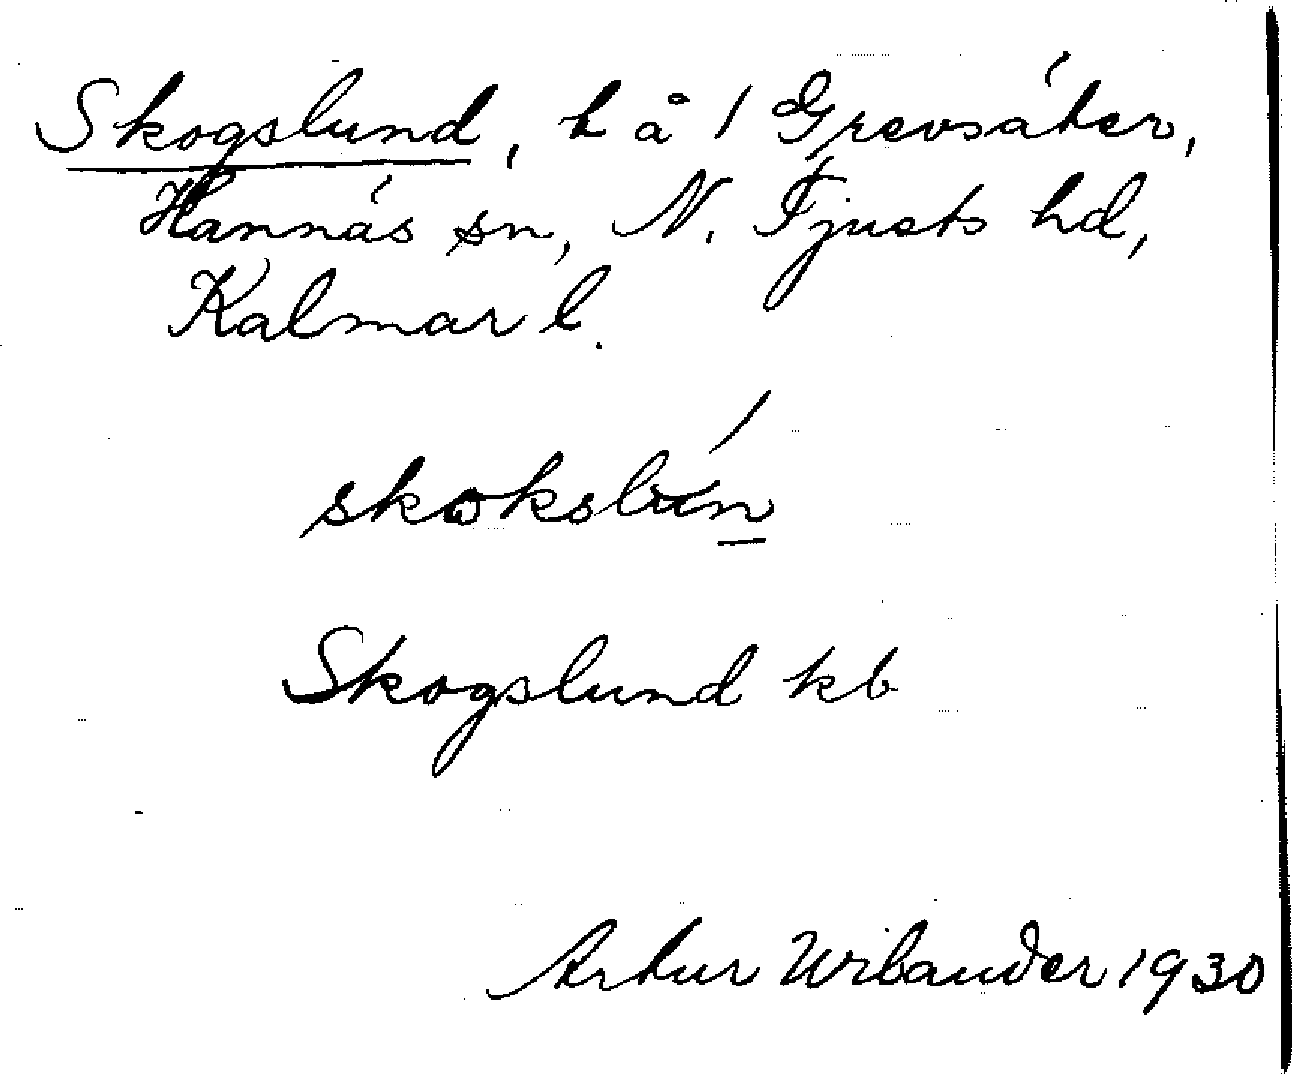 Skogslund, h å 1 Grevsåker,
Hannäs sn, N. Tjusts hd,
Kalmar l.
skokslún
Skogslund kb
Artur Wilander 1930